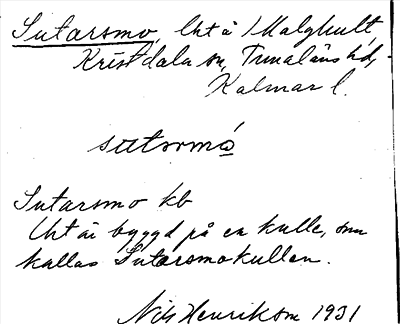 Sutarsmo, lht å Malghult
Kristdala sn, Tunaläns hd,
Kalmar l.
sutormó
Sutarsmo kb
lht är byggd på en kulle, som
kallas Sutarsmokullen.
Nils Henrikson 1931